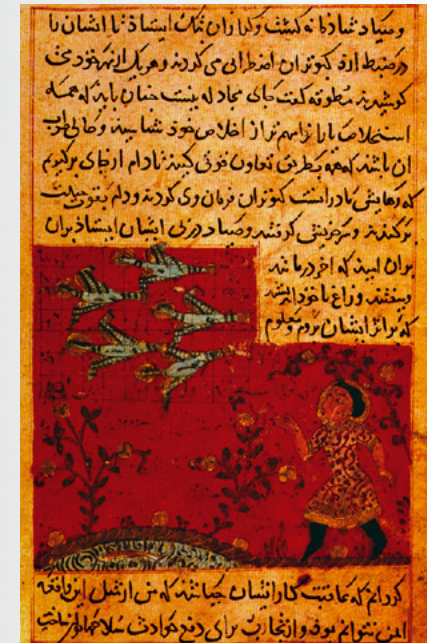 و صیاد شاذمانه کشت و کرازان تک ایستاذ تا ایشان را
در ضبط ارد کبوتران اضطرابی می کردند و هر یک از بهر خود می
کوشیدند مطوقه کفت جای مجادله نیست چنان باید که همه
استخلاص یاران مهم تر از تخلص خود شناسید و حالی صواب
ان باشد که همه بطریق تعاون قوتی کنید تا دام از جای برکیریم
که رهایش ما در انست کبوتران فرمان وی کردند و دام
برکندند و سر خویش کرفتند و صیاد در پی ایشان ایستاذ بران
بران امید که اخر درمانند
و بیفتند و زاغ با خود اندیشید
که بر اثر ایشان بروم و معلوم
کردانم که عاقبت کار ایشان چه باشد که من از مثل این واقعه
ایمن نتوانم بوذ و از تجارب برای دفع حوادث سلاحها توان ساخت